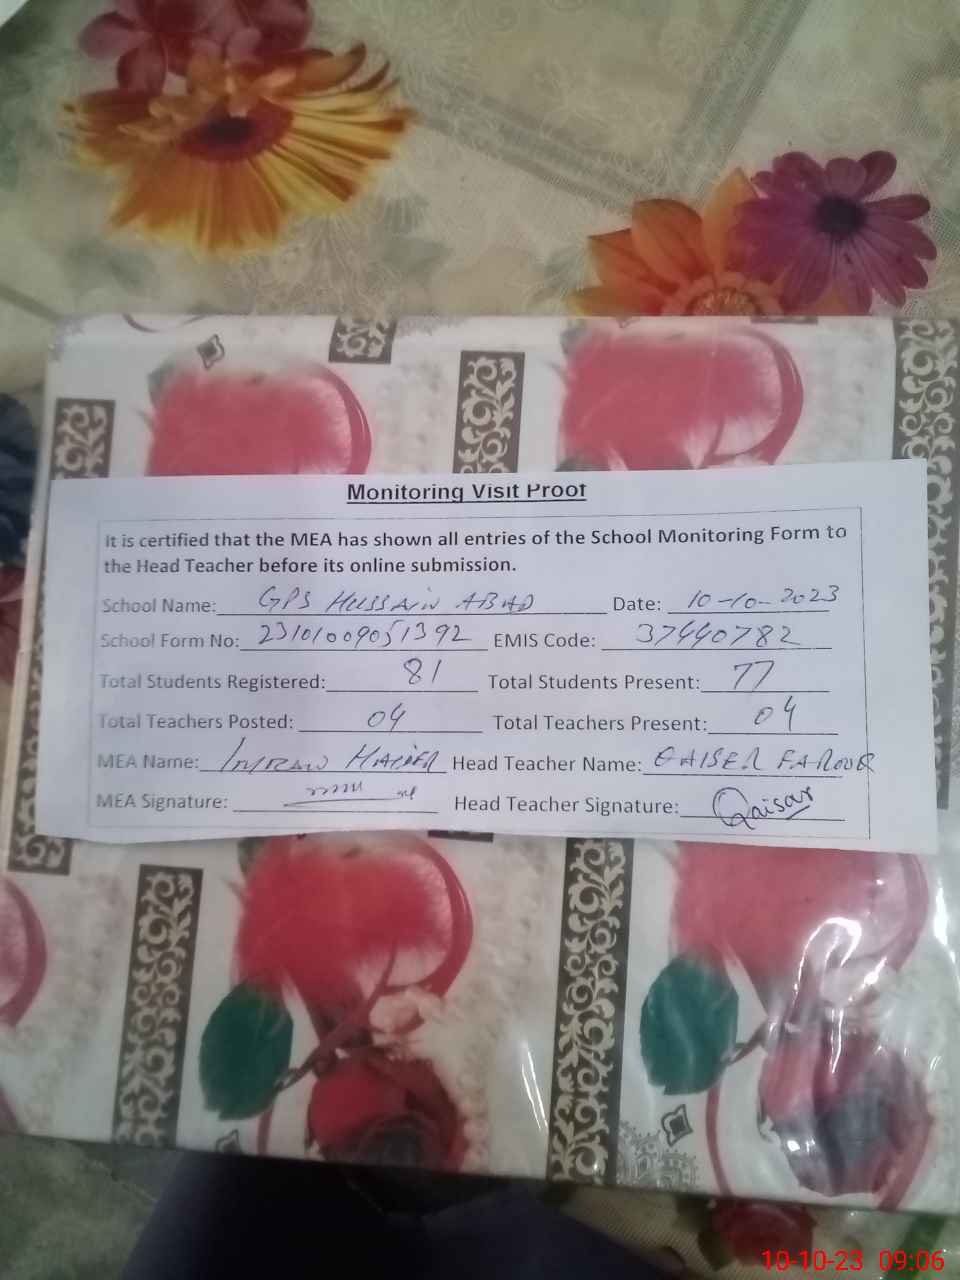 Monitoring Visit Proof
It is certified that the MEA has shown all entries of the School Monitoring Form to
the Head Teacher before its online submission.
School Name: GPS HUSSAIN ABAD Date: 10-10-2023
School Form No: 23101009051392 EMIS Code: 37440782
Total Students Registered: 81 Total Students Present: 77
Total Teachers Posted: 04 Total Teachers Present: 04
MEA Name: IMRAN HAIDER Head Teacher Name: QAISER FAROOQ
MEA Signature: Head Teacher Signature: Qaisar
10-10-23 09:06